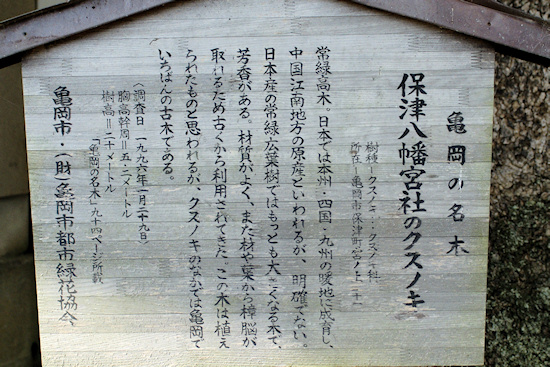 亀岡の名木
保津八幡宮社のクスノキ
樹種＝クスノキ・クスノキ科
所在＝亀岡市保津町宮ノ上
常緑高木。日本では本州・四国・九州の暖地に成育し、
中国江南地方の原産といわれるが、明確でない。
日本産の常緑広葉樹ではもっとも大きくなる木で、
芳香がある。材質がよく、また材や葉から樟脳が
取れるため古くから利用されてきた。この木は植え
られたものと思われるが、クスノキのなかでは亀岡で
いちばんの古木である。
調査日（一九九六年一月二十九日）
胸高幹周＝五・二メートル
樹高＝二十メートル
「亀岡の名木」九十四ページ所載
亀岡市・一財 亀岡市都市緑花協会